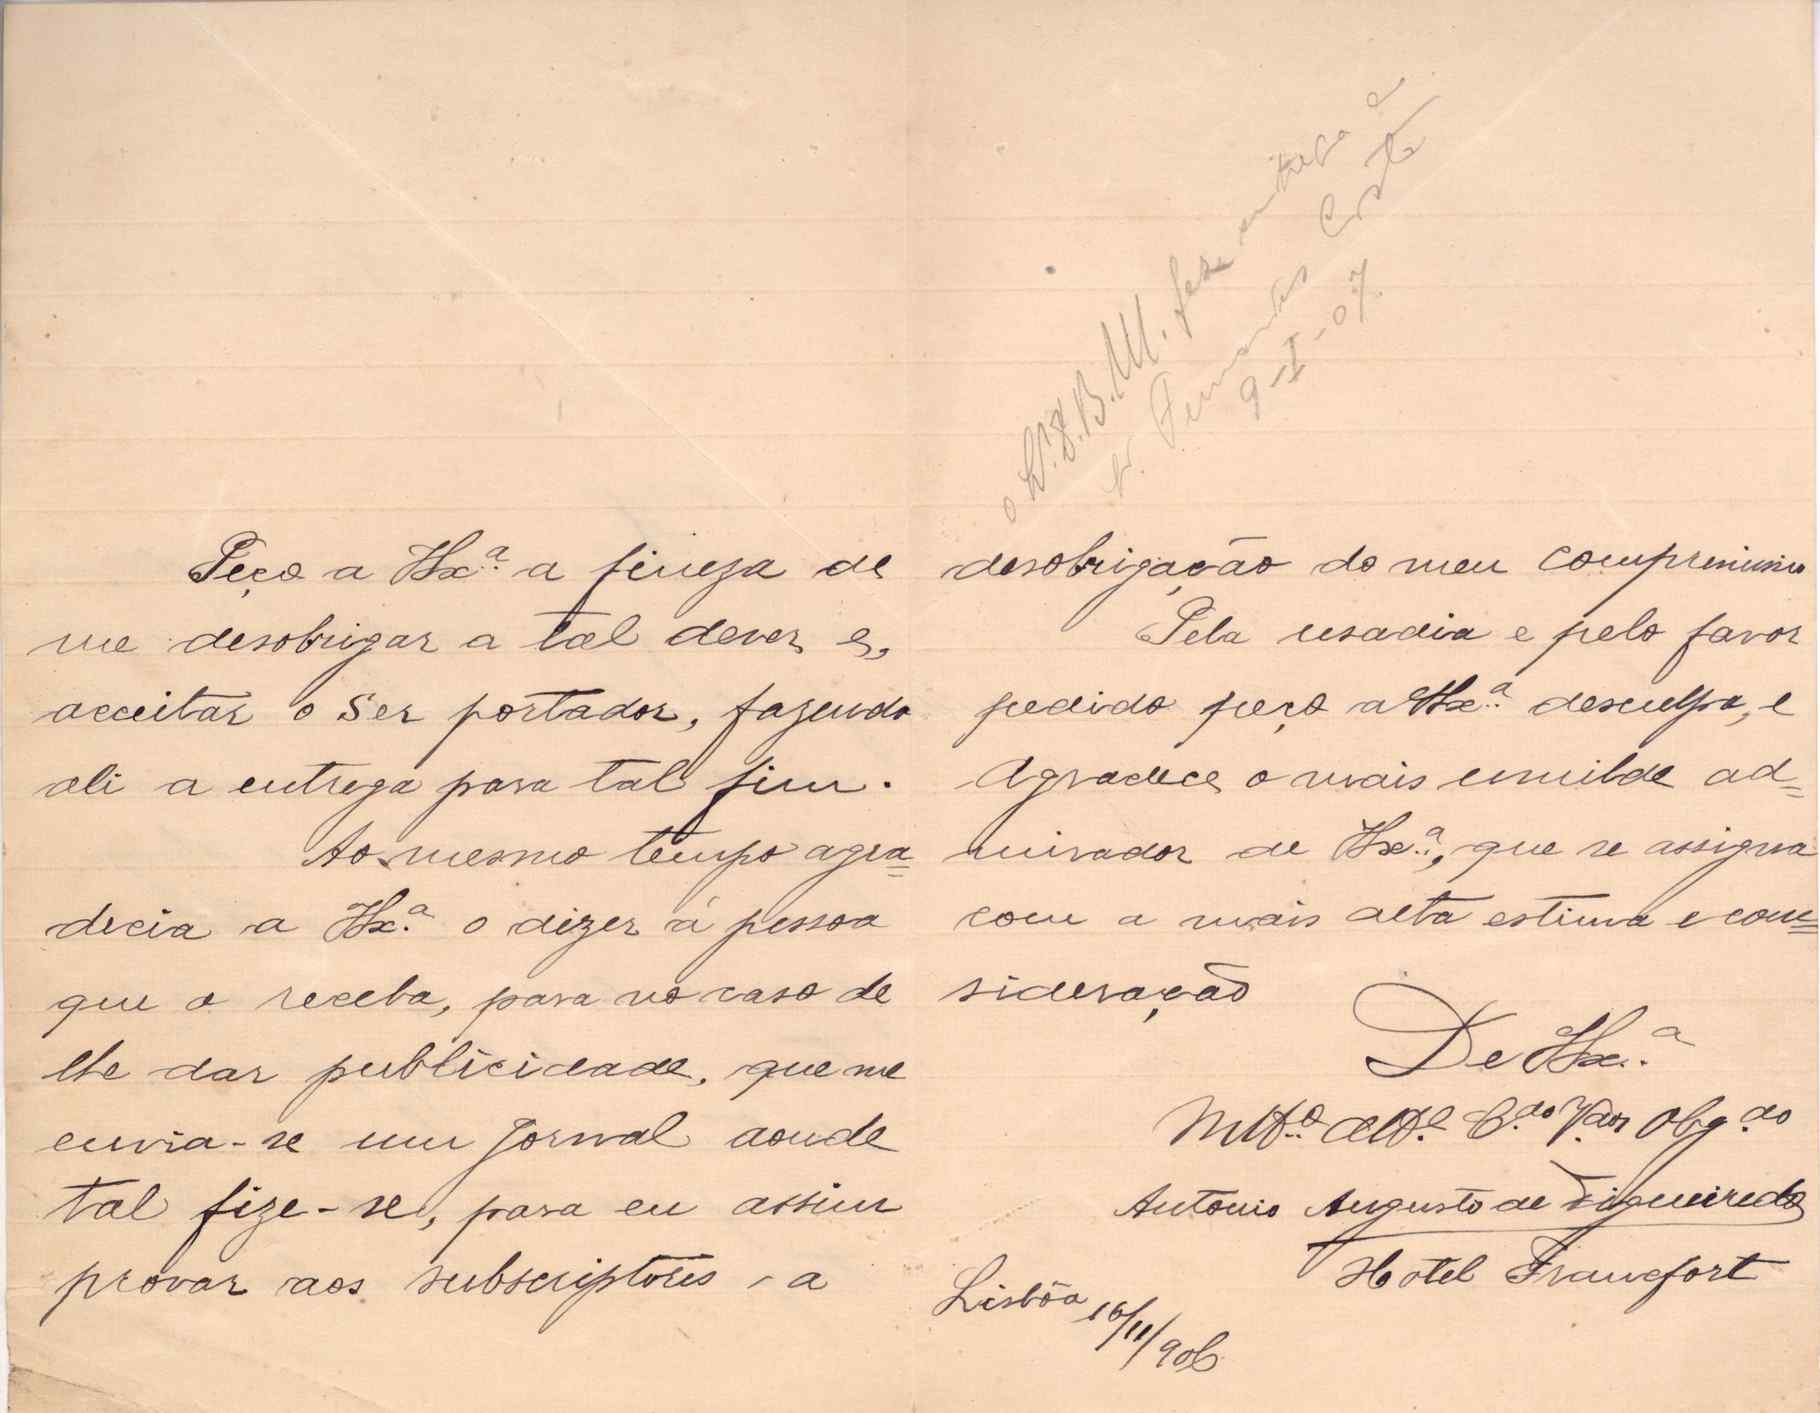 Peço a V. Ex.ª a fineza de
me desobrigar a tal dever, e,
acceitar o ser portador, fazendo
ali a entrega para tal fim.
Ao mesmo tempo agra=
decia a V. Ex.ª o dizer á pessoa
que o receba, para no caso de
lhe dar publicidade, que me
envia-se um Jornal aonde
tal fize-se, para eu assim
provar aos subscriptores, a
o Dr. B. M. fez entrega a
Fernandes Costa
9-I-07
desobrigação do meu
Pela usadia e pelo favor
pedido peço a V. Ex.ª desculpa, e
Agradece o mais umilde ad=
mirador de V. Ex.ª, que se assigna
com a mais alta estima e con=
sideração
De V. Ex.ª
Mt.º Att.º C.do V.dor Obg.do
Antonio Augusto de Figueiredo
Hotel Francfort
Lisbôa 16/11/906